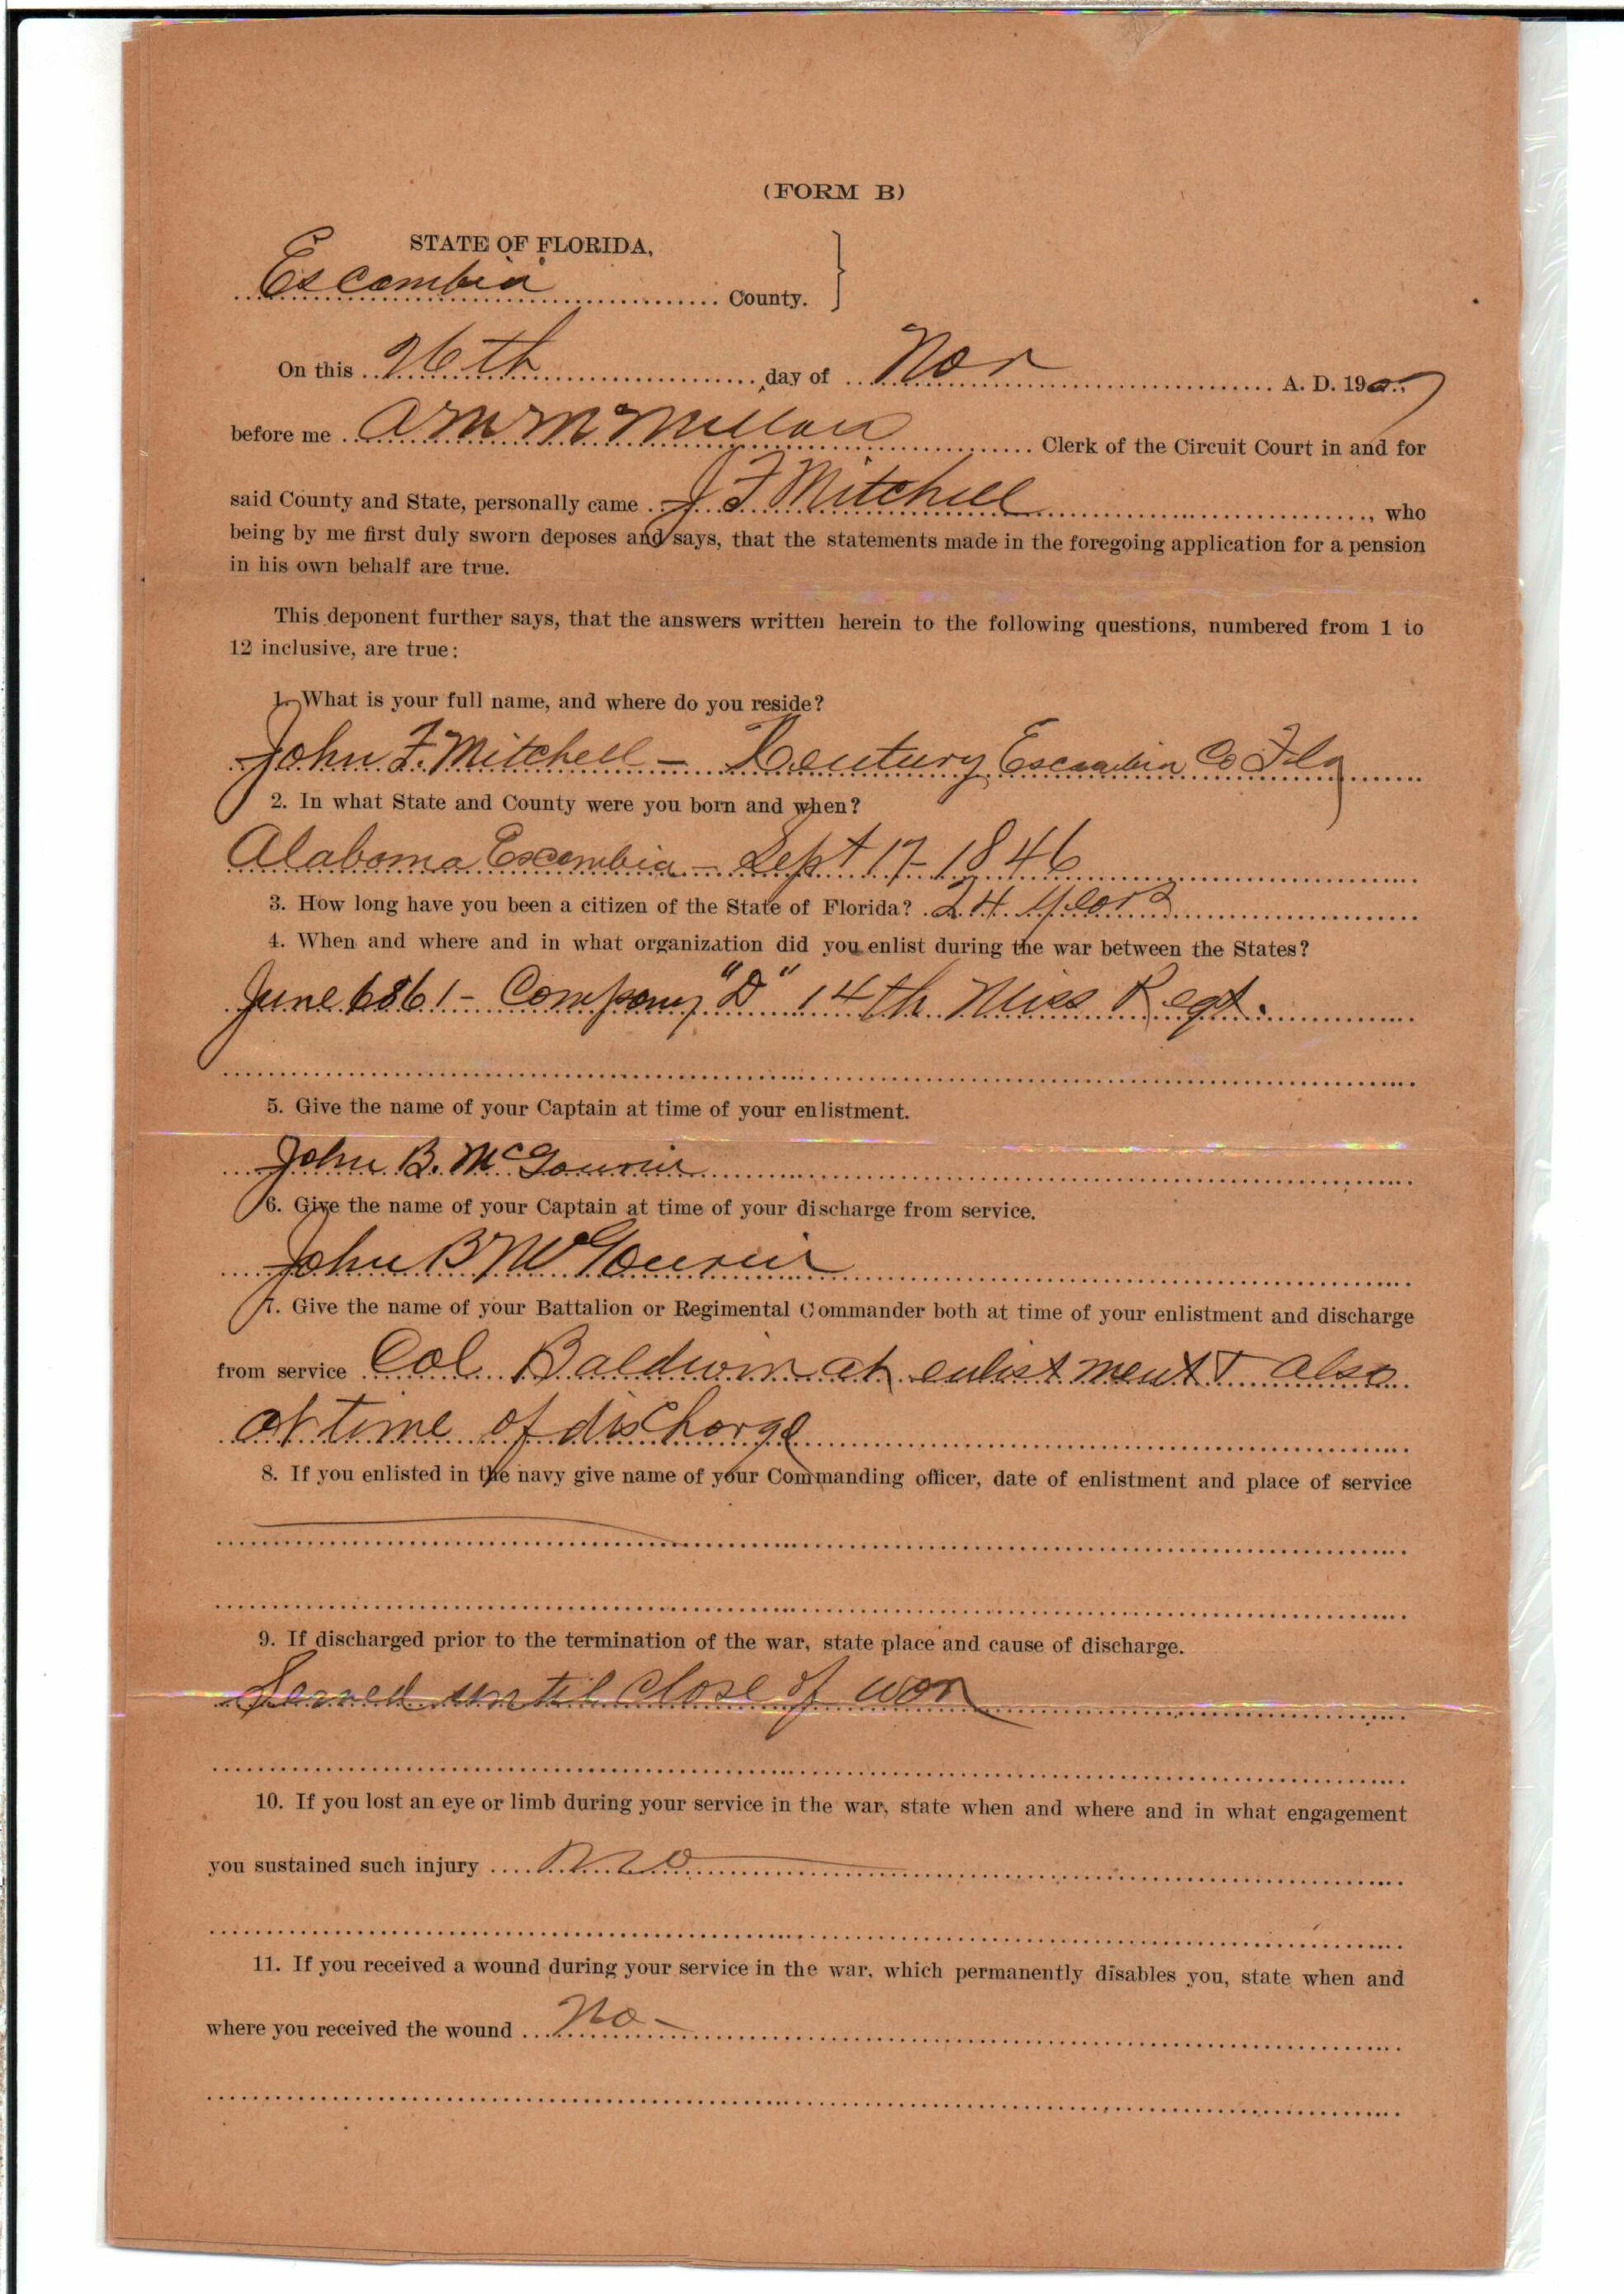 (FORM B)
STATE OF FLORIDA,
Escambia County.
On this 26th day of Nov A. D. 1907
before me A M McMillan Clerk of the Circuit Court in and for
said County and State, personally came J F Mitchell, who
being by me first duly sworn deposes and says, that the statements made in the foregoing application for a pension
in his own behalf are true.
This deponent further says, that the answers written herein to the following questions, numbered from 1 to
12 inclusive, are true:
1. What is your full name, and where do you reside?
John F. Mitchell - Century Escambia Co Fla
2. In what State and County were you born and when?
Alabama Escambia - Sept 17 - 1846
3. How long have you been a citizen of the State of Florida? 24 years
4. When and where and in what organization did you enlist during the war between the States?
June 6 861 - Company "D" 14th Miss Regt.
5. Give the name of your Captain at time of your enlistment.
John B. McGowin
6. Give the name of your Captain at time of your discharge from service.
John B McGowin
7. Give the name of your Battalion or Regimental Commander both at time of your enlistment and discharge
from service Col. Baldwin at enlistment & also
at time of discharge
8. If you enlisted in the navy give name of your Commanding officer, date of enlistment and place of service
9. If discharged prior to the termination of the war, state place and cause of discharge.
Served until close of war
10. If you lost an eye or limb during your service in the war, state when and where and in what engagement
you sustained such injury
11. If you received a wound during your service in the war, which permanently disables you, state when and
where you received the wound No -